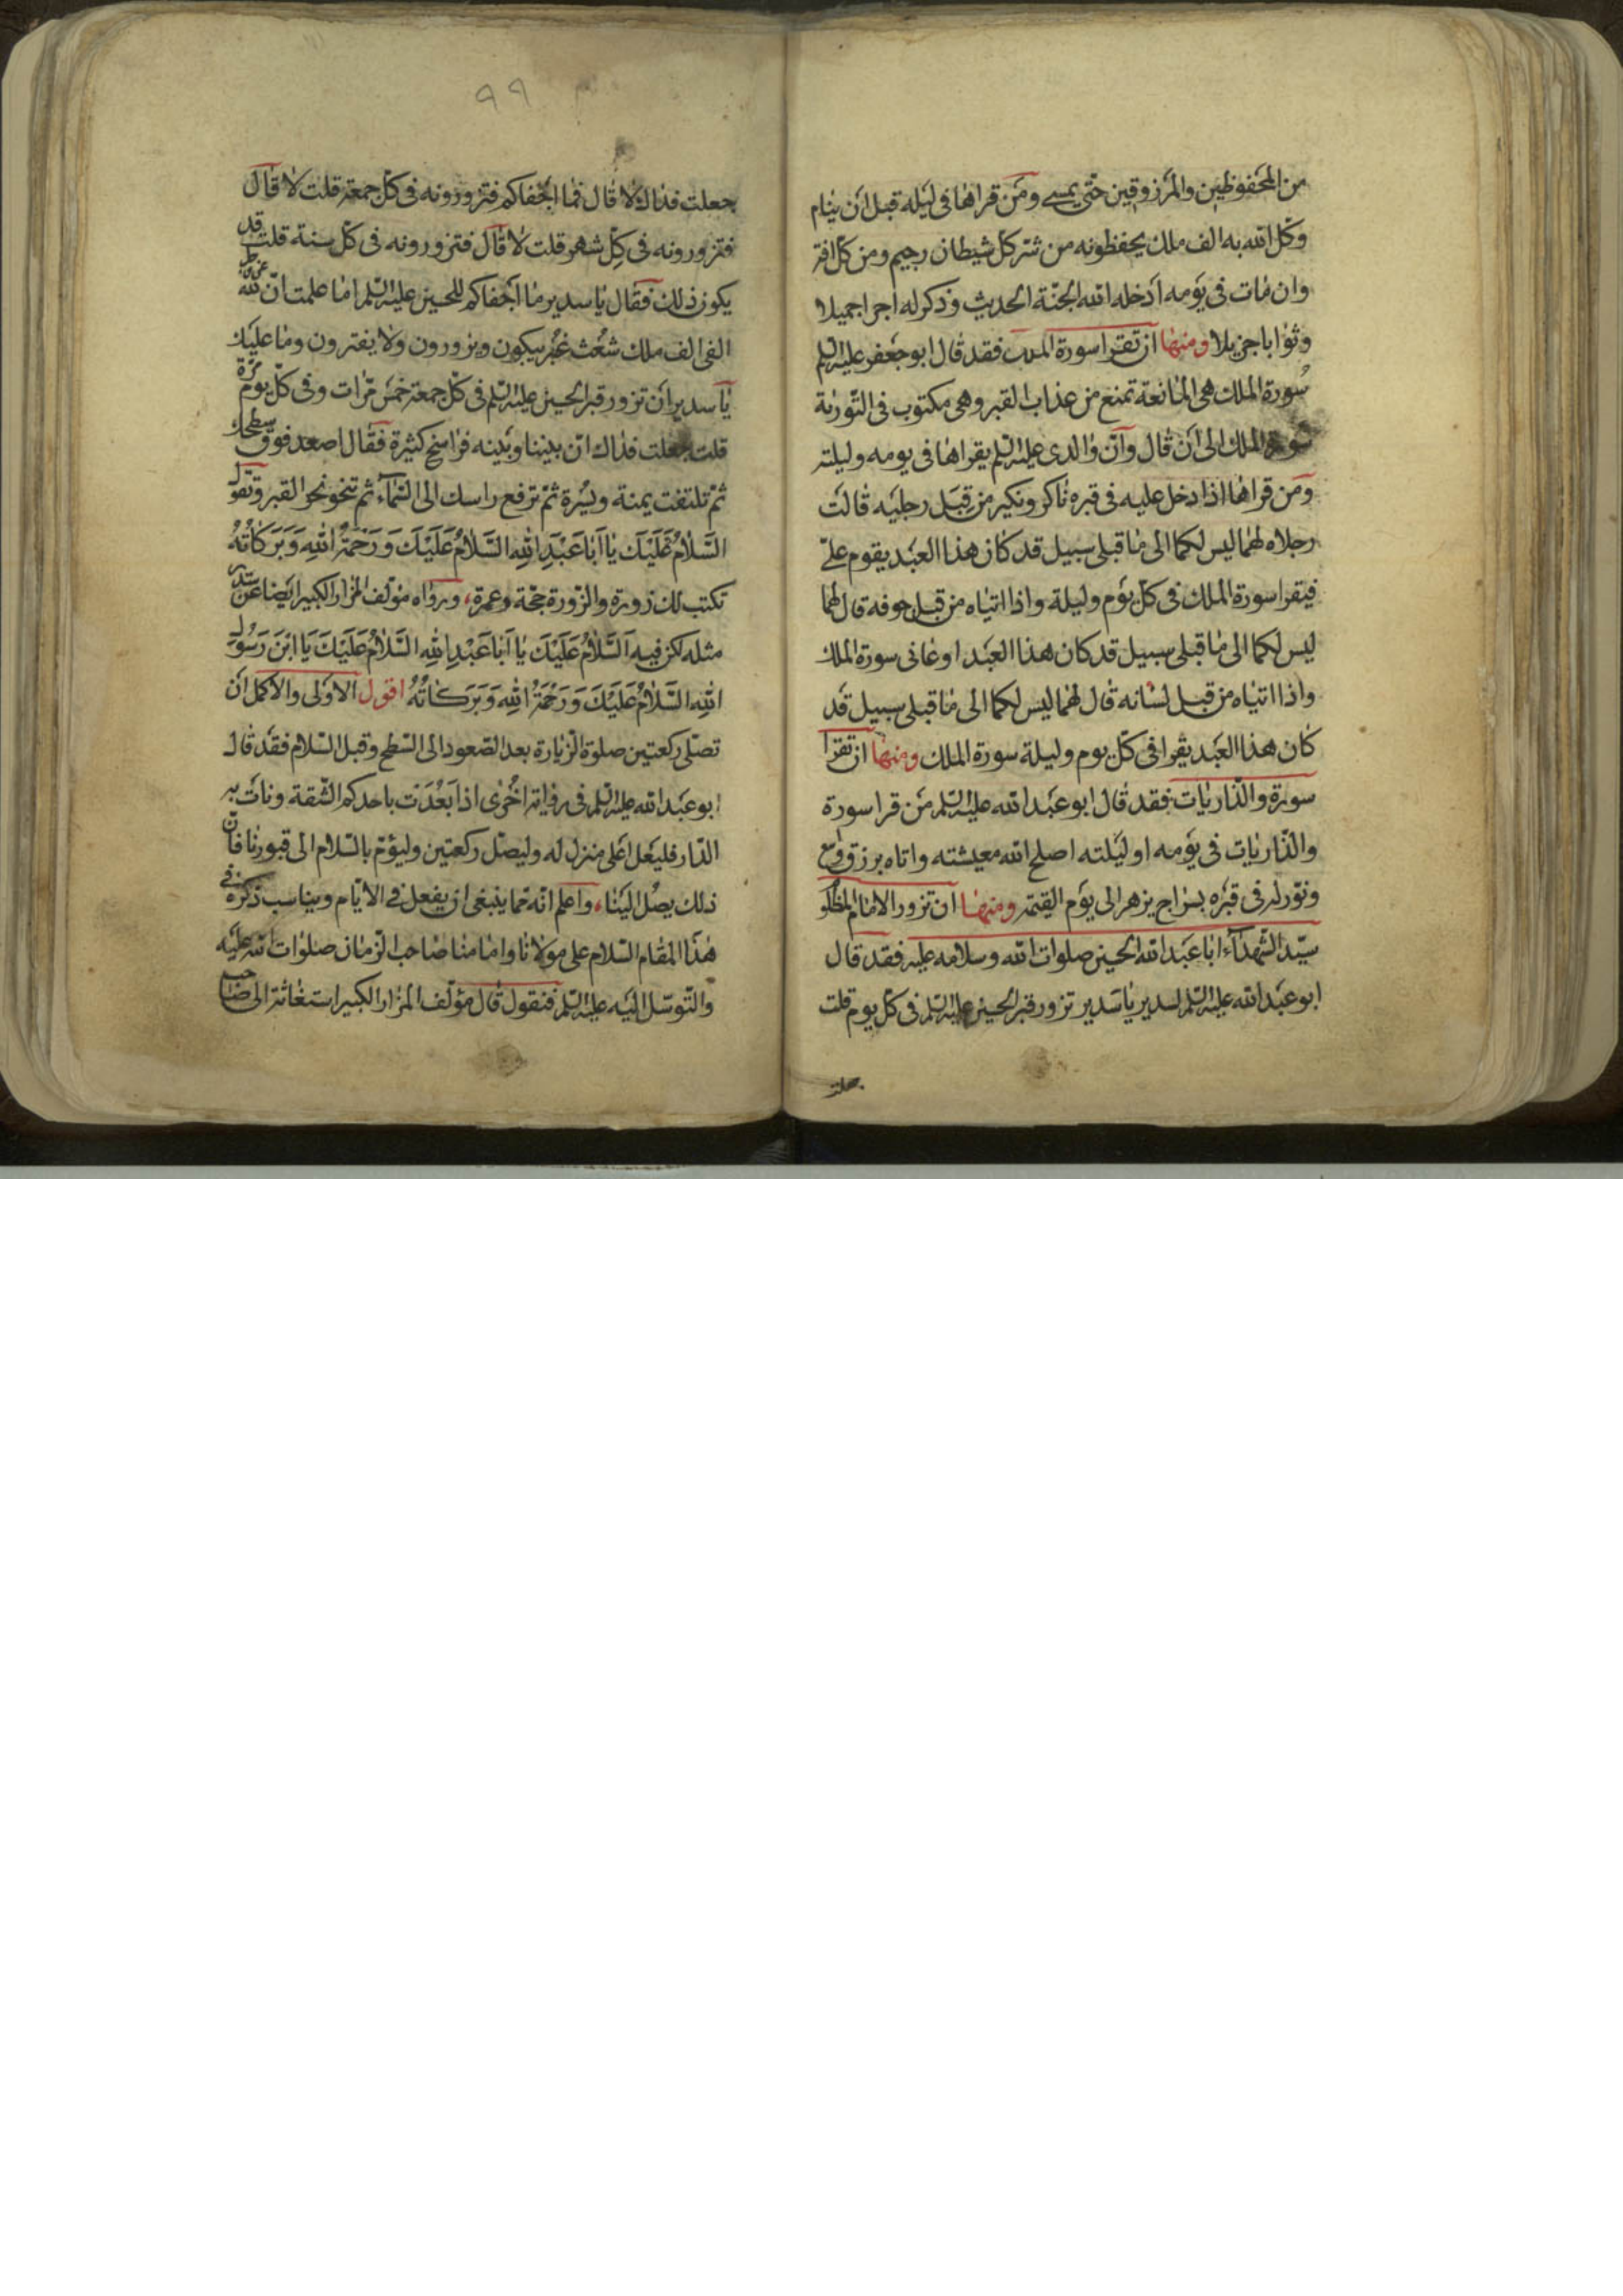 من المحفوظين والمرزوقين حتى يمسى ومن قراها فى ليله قبل ان ينام
وكل الله به الف ملك يحفظونه من شر كل شيطان رجيم ومن كل افة
وان مات فى يومه ادخله الله الجنة الحديث وذكر له اجرا جميلا
وثوابا جزيلا ومنها ان تقرا سورة الملك فقد قال ابو جعفر عليه السلم
سورة الملك هى المانعة تمنع من عذاب القبر وهى مكتوب فى التورية
سورة الملك الى ان قال وان والدى عليه السلم يقراها فى يومه وليلته
ومن قراها اذا دخل عليه فى قبره ناكر ونكير من قبل رجليه قالت
رجلاه لهما ليس لكما الى ما قبلى سبيل قد كان هذا العبد يقوم على
فيقرا سورة الملك فى كل يوم وليلة واذا اتياه من قبل جوفه قال لهما
ليس لكما الى ما قبلى سبيل قد كان هذا العبد اوعانى سورة الملك
واذا اتياه من قبل لسانه قال لهما ليس لكما الى ما قبلى سبيل قد
كان هذا العبد يقرا فى كل يوم وليلة سورة الملك ومنها ان تقرا
سورة والذاريات فقد قال ابو عبد الله عليه السلم من قرا سورة
والذاريات فى يومه او ليلته اصلح الله معيشته واتاه برزق واسع
ونور له فى قبره بسراج يزهر الى يوم القيمة ومنها ان تزور الامام المظلو
سيد الشهداء ابا عبد الله الحسين صلوات الله وسلامه عليه فقد قال
ابو عبد الله عليه السلم لسدير يا سدير تزور قبر الحسين عليه السلم فى كل يوم قلت
جعلت
٩٩
جعلت فداك لا قال فما اجفاكم فتزورونه فى كل جمعة قلت لا قال
فتزورونه فى كل شهر قلت لا قال فتزورونه فى كل سنة قلت قد
يكون ذلك فقال يا سدير ما اجفاكم للحسين عليه السلم اما علمت ان لله
الفى الف ملك شعث غبر يبكون ويزورون ولا يفترون وما عليك
يا سدير ان تزور قبر الحسين عليه السلم فى كل جمعة خمس مرات وفى كل يوم مرة
قلت جعلت فداك ان بيننا وبينه فراسخ كثيرة فقال اصعد فوق سطحك
ثم تلتفت يمنة ويسرة ثم ترفع راسك الى السماء ثم تنحو نحو القبر وتقول
اَلسَّلامُ عَلَيْكَ يا اَبا عَبْدِ اللهِ السَّلامُ عَلَيْكَ وَرَحْمَةُ اللهِ وَبَرَكاتُهُ
تكتب لك زورة والزورة حجة وعمرة، ورواه مؤلف المزار الكبير ايضا عن سدير
مثله لكن فيه اَلسَّلامُ عَلَيْكَ يا اَبا عَبْدِ اللهِ السَّلامُ عَلَيْكَ يَا ابْنَ رَسُولِ
اللهِ السَّلامُ عَلَيْكَ وَرَحْمَةُ اللهِ وَبَرَكاتُهُ اقول الاولى والاكمل ان
تصلى ركعتين صلوة الزيارة بعد الصعود الى السطح وقبل السلام فقد قال
ابو عبد الله عليه السلم فى رواية اخرى اذا بعدت باحدكم الشقة ونات به
الدار فليعل اعلى منزل له وليصل ركعتين وليؤم بالسلام الى قبورنا فان
ذلك يصل الينا، واعلم انه مما ينبغى ان يفعل فى الايام ويناسب ذكره فى
هذا المقام السلام على مولانا وامامنا صاحب الزمان صلوات الله عليه
والتوسل اليه عليه السلم فنقول قال مؤلف المزار الكبير استغاثة الى صاحب